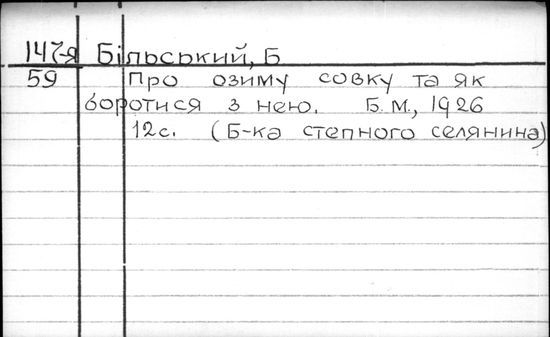 147-я Більський, Б
59 Про озиму совку та як
боротися з нею. Б.М., 1926
12с. (Б-ка степного селянина)